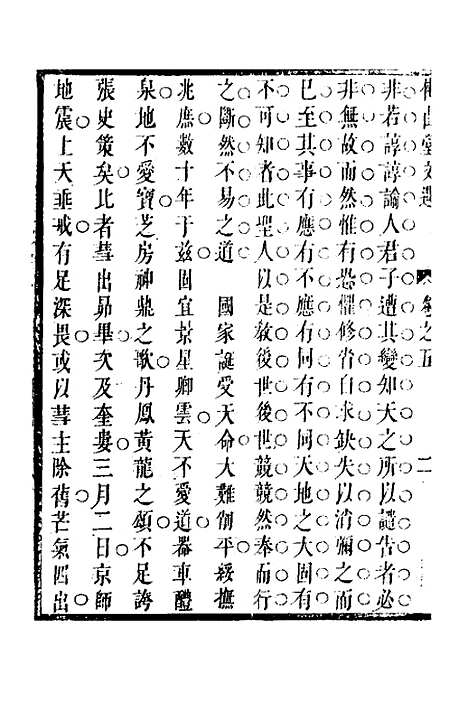 卷之五 二
非若諄諄諭人君子遭其變知天之所以譴告者必
非無故而然惟有恐懼修省自求缺失以消彌之而
已至其事有應有不應有同有不同天地之大固有
不可知者此聖人以是敎後世後世兢兢然奉而行
之斷然不易之道 國家誕受天命大難削平綏撫
兆庶數十年于茲固宜景星卿雲天不愛道器車醴
泉地不愛寶芝房神鼎之歌丹鳳黃龍之頌不足誇
張史策矣比者彗出昴畢次及奎婁三月二日京師
地震上天垂戒有足深畏或以彗主除舊芒氣四出